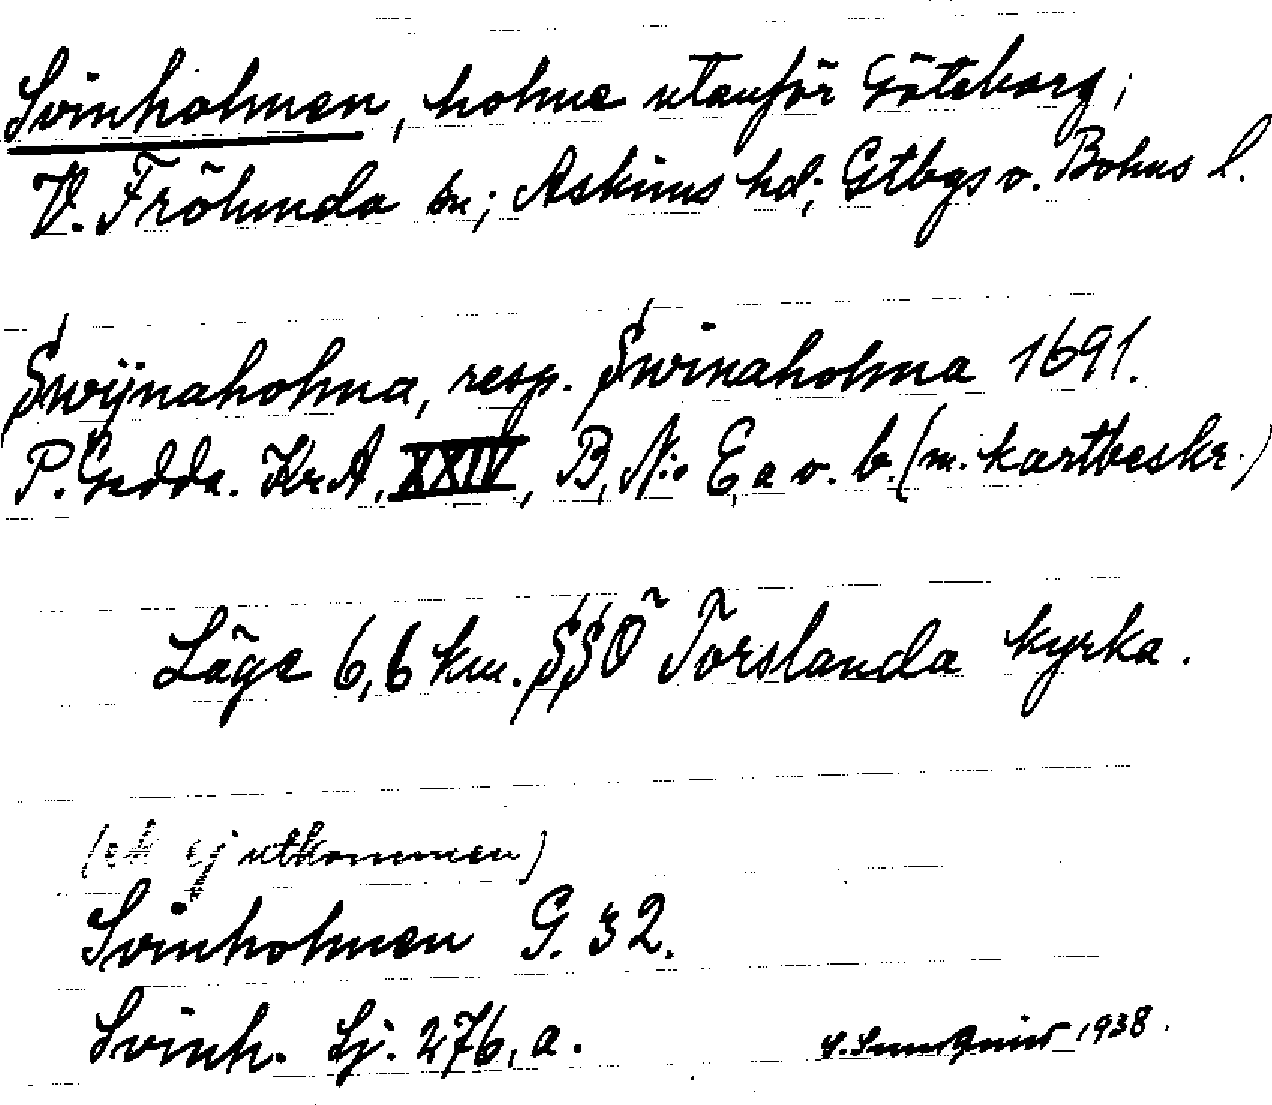 Svinholmen, holme utanför Göteborg;
V. Frölunda sn; Askims hd; Gtbgs o. Bohus l.
Swijnaholma, resp. Swinaholma 1691.
P. Gedda. Kr.A. XXIV, B, N:o E, a o. b. (m. kartbeskr.)
Läge 6,6 km. SSÖ Torslanda kyrka.
(ek ej utkommen)
Svinholmen G. 32.
Svinh. Sj. 276, a.
1938.